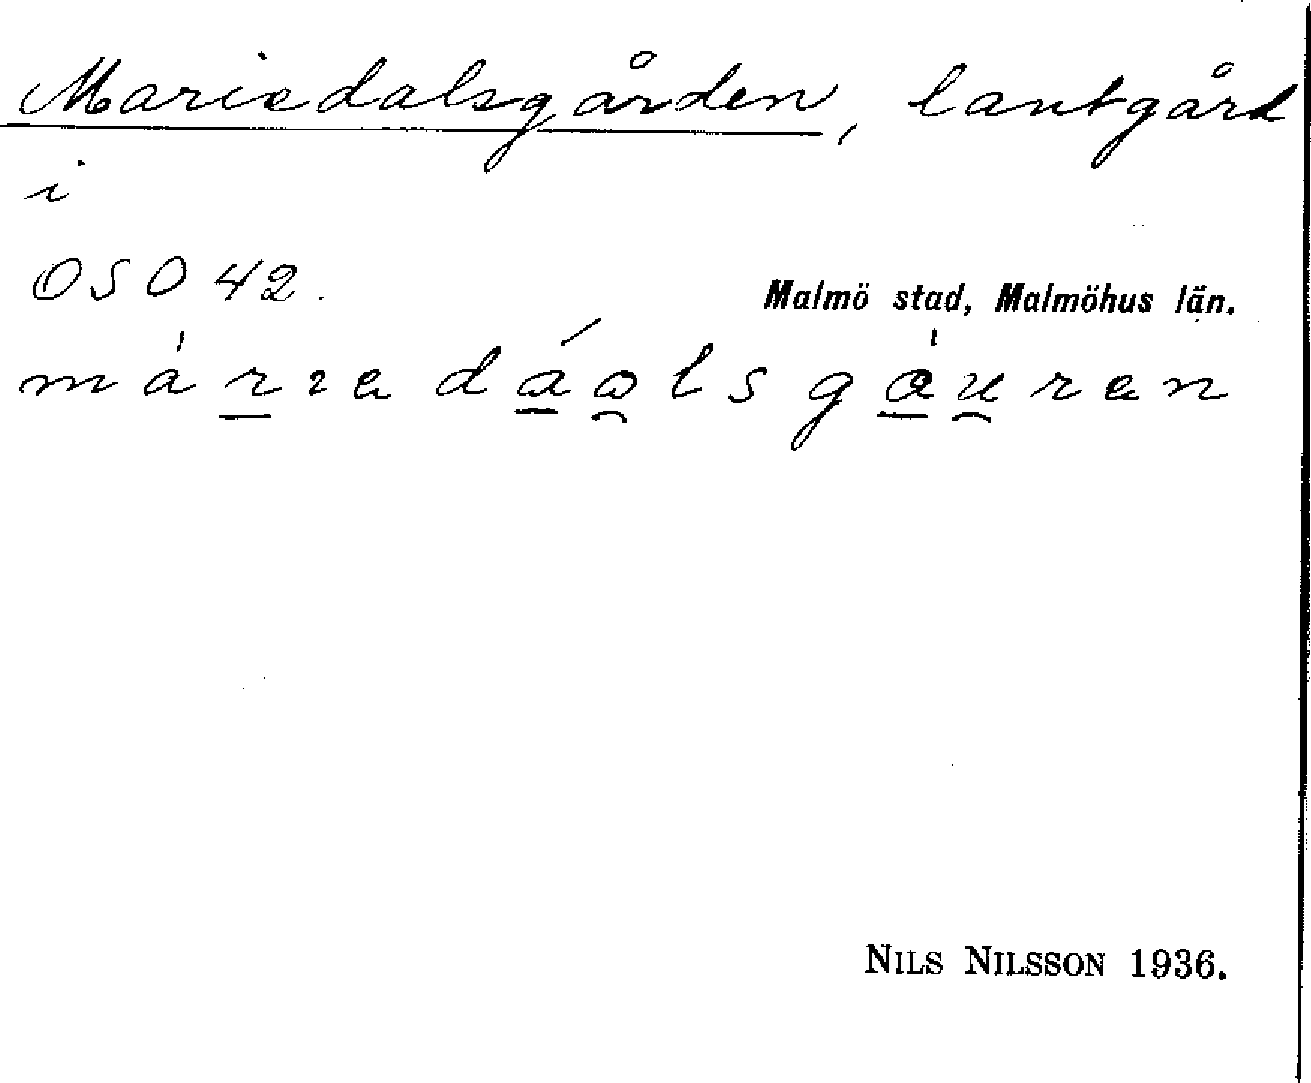 Mariedalsgården, lantgård
i
OSO 42.
Malmö stad, Malmöhus län.
NILS NILSSON 1936.